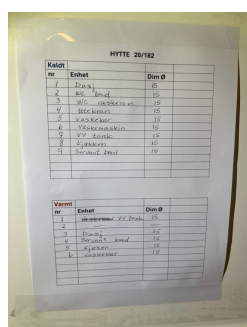 HYTTE 20/182
Kaldt
nr Enhet Dim Ø
1 Dusj 15
2 WC bad 15
3 WC vaskerom 15
4 Utekran 15
5 vaskekar 15
6 Vaskemaskin 15
7 VV tank 15
8 Kjøkken 15
9 Servant bad 15
Varmt
nr Enhet Dim Ø
1 VV tank 15
2
3 Dusj 15
4 Servant bad 15
5 Kjøken 15
6 vaskekar 15